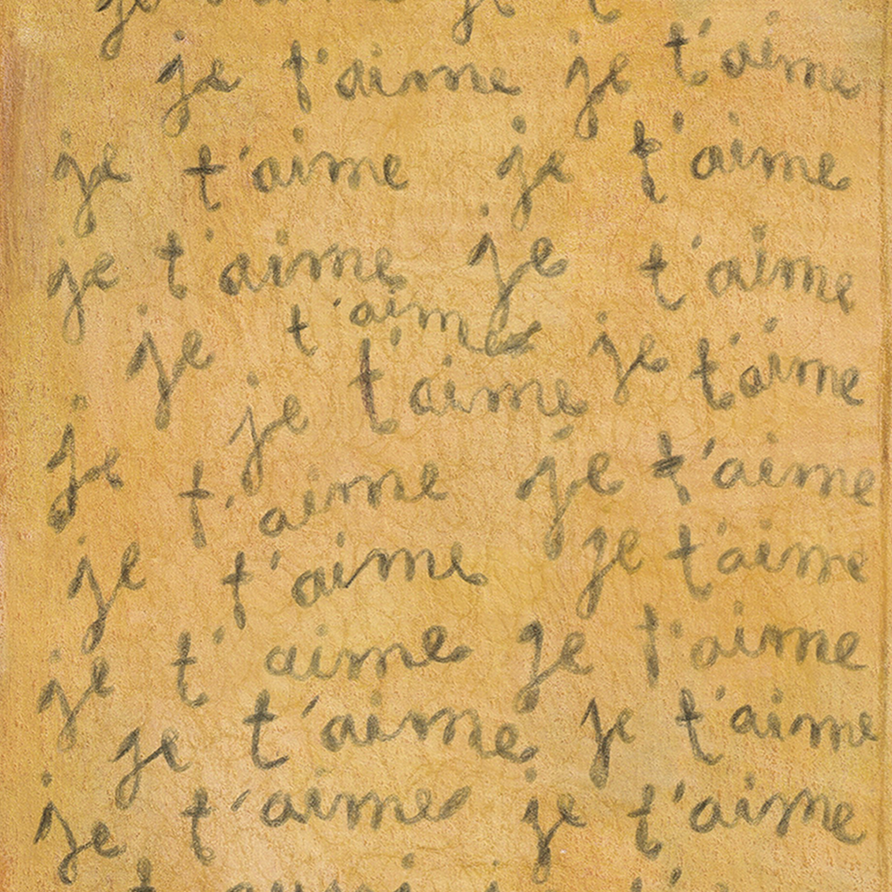 je t'aime je t'aime
je t'aime je t'aime
je t'aime je t'aime
je t'aime je t'aime
je t'aime
je t'aime je t'aime
je t'aime je t'aime
je t'aime je t'aime
je t'aime je t'aime
je t'aime je t'aime